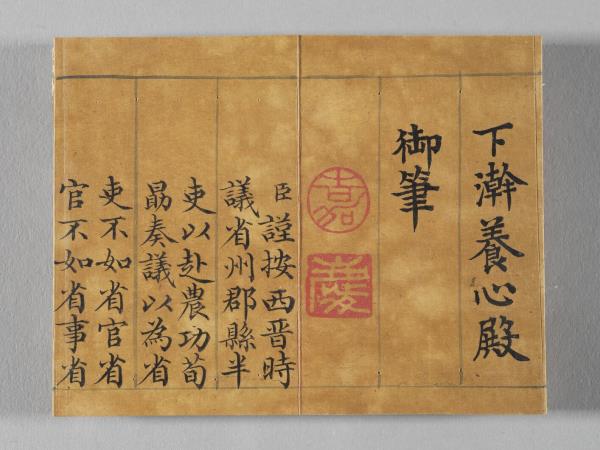 下澣養心殿
御筆
嘉
慶
臣謹按西晉時
議省州郡縣半
吏以赴農功荀
勗奏議以為省
吏不如省官省
官不如省事省